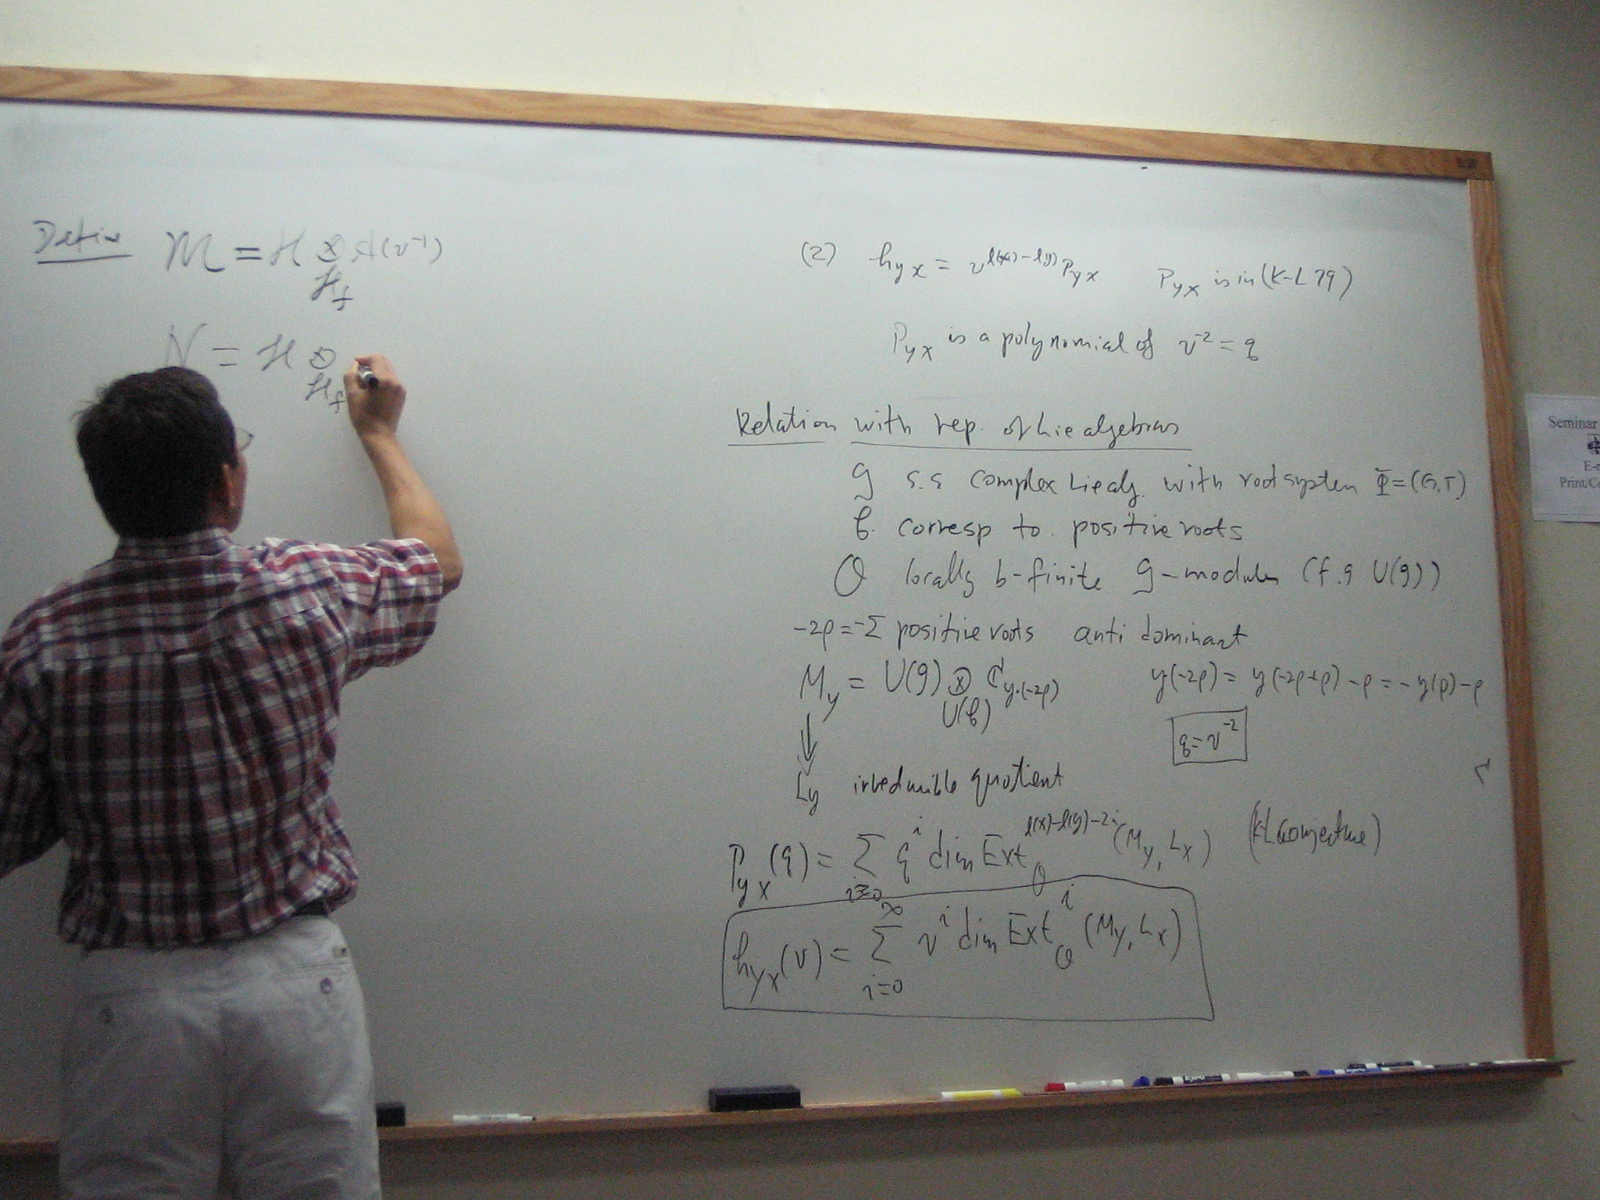 Define M = H ⊗ A(v⁻¹)
H_f
N = H ⊗
H_f
(2) h_{yx} = v^{l(x)-l(y)} P_{yx} P_{yx} is in (K-L 79)
P_{yx} is a polynomial of v⁻² = q
Relation with rep. of Lie algebras
g s.s complex Lie alg. with root system Φ=(G,T)
b corresp to positive roots
O locally b-finite g-modules (f.g U(g))
-2ρ = -Σ positive roots anti dominant
M_y = U(g) ⊗ ℂ_{y·(-2ρ)} y(-2ρ) = y(-2ρ+ρ)-ρ = -y(ρ)-ρ
U(b)
q=v⁻²
↓
L_y irreducible quotient
P_{yx}(q) = Σ_{i≥0} q^i dim Ext_O^{l(x)-l(y)-2i} (M_y, L_x) (KL conjecture)
h_{yx}(v) = Σ_{i=0}^∞ v^i dim Ext_O^i (M_y, L_x)
Seminar